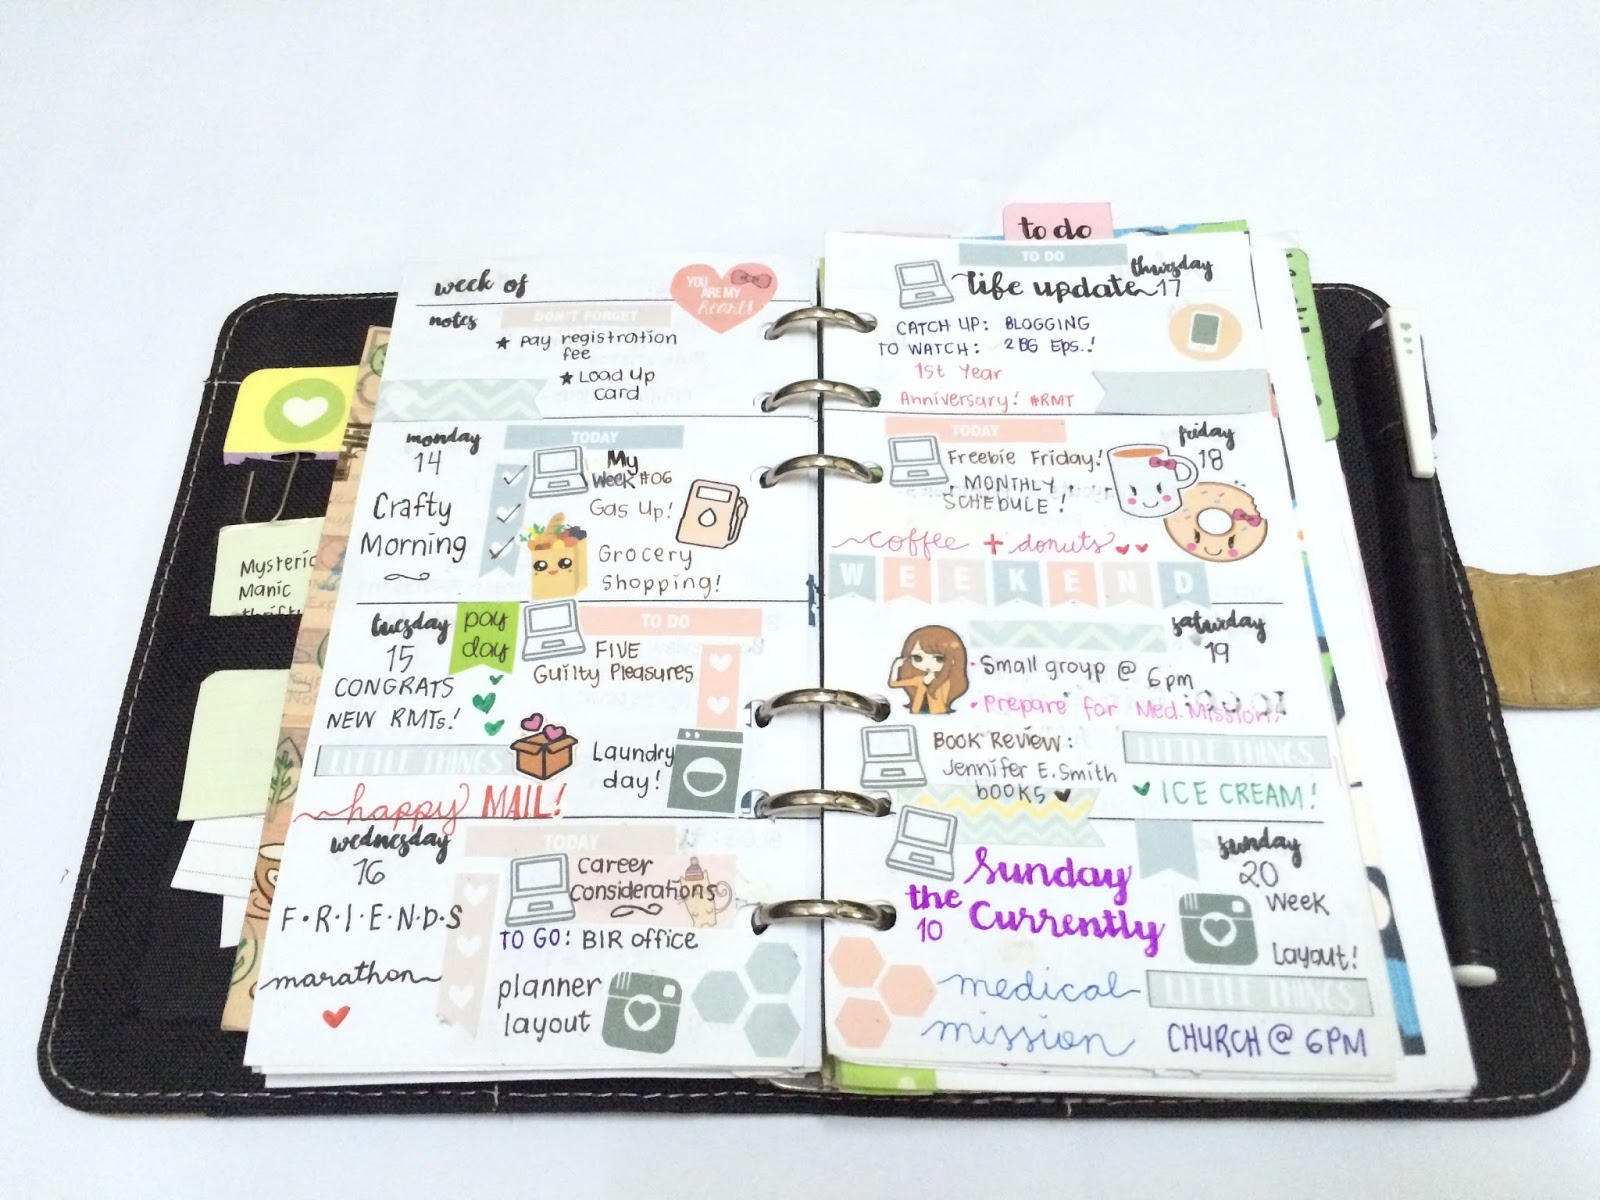 week of
YOU
ARE MY
hearts
notes
DON'T FORGET
★ pay registration
fee
★ Load up
card
monday
14
Crafty
Morning
TODAY
My
Week #06
Gas Up!
Grocery
Shopping!
tuesday
15
pay
day
CONGRATS
NEW RMTs!
TO DO
FIVE
Guilty Pleasures
LITTLE THINGS
Laundry
day!
happy MAIL!
wednesday
16
F·R·I·E·N·D·S
marathon
TODAY
Career
Considerations
TO GO: BIR office
planner
layout
Mysteric
Manic
to do
TO DO
life update
thursday
17
CATCH UP: BLOGGING
TO WATCH: 2BG Eps.!
1st Year
Anniversary! #RMT
TODAY
friday
18
Freebie Friday!
MONTHLY
SCHEDULE!
coffee + donuts
WEEKEND
saturday
19
• Small group @ 6pm
• Prepare for Med. Mission!
Book Review:
Jennifer E. Smith
books
LITTLE THINGS
ICE CREAM!
sunday
20
Sunday
the Currently
10
Week
Layout!
medical
mission
LITTLE THINGS
CHURCH @ 6PM